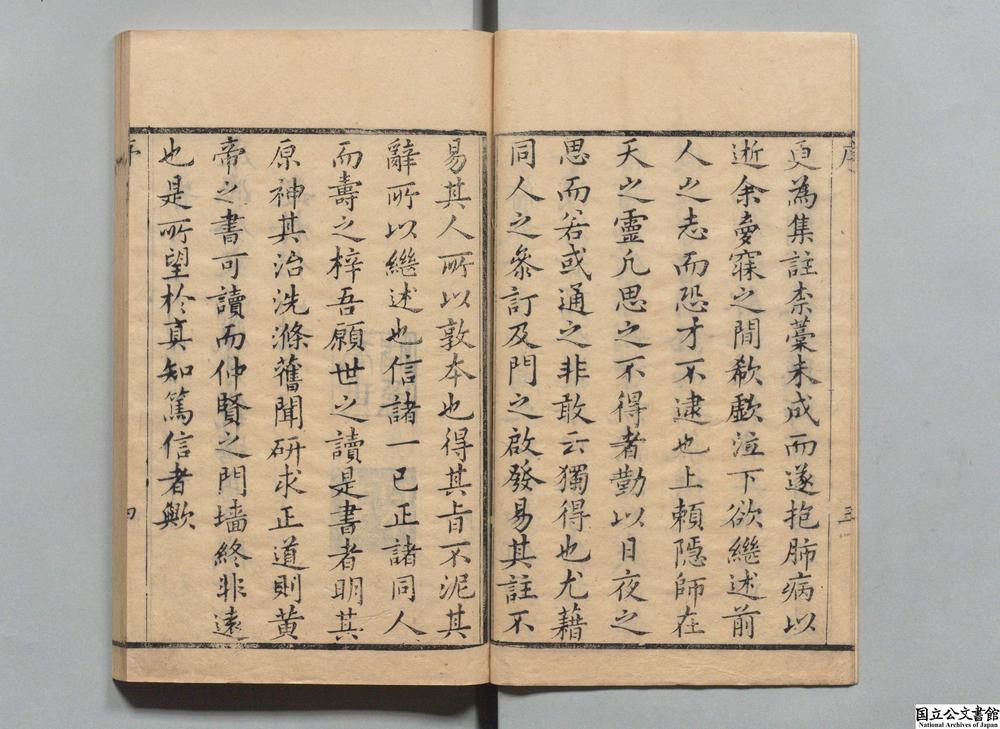 序
更為集註柰藁未成而遂抱肺病以
逝余夢寐之間欷歔泣下欲繼述前
人之志而恐才不逮也上賴隱師在
天之靈凡思之不得者勤以日夜之
思而若或通之非敢云獨得也尤藉
同人之叅訂及門之啟發易其註不
三
易其人所以敦本也得其旨不泥其
辭所以繼述也信諸一已正諸同人
而壽之梓吾願世之讀是書者明其
原神其治洗滌舊聞研求正道則黃
帝之書可讀而仲賢之門墻終非遠
也是所望於真知篤信者歟
序
四
国立公文書館
National Archives of Japan